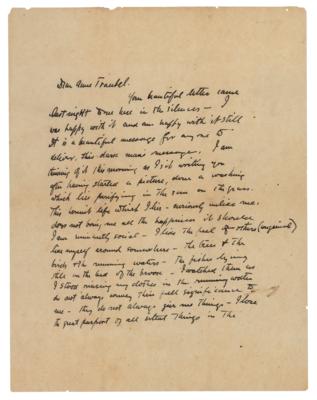 Dear Anne Traubel.
Your beautiful letter came
last night to me here in the silences – I
was happy with it and am happy with it still
It is a beautiful message for anyone to
deliver, this dear man's message. I am
thinking of it this morning as I sit writing you
after having started a picture, done a washing
which lies purifying in the sun on the grass.
This hermit life which I live – seriously
does not bring me all the happiness it should
I am eminently social – I like the feel of others
lies myself around somewhere – the trees & the
birds & the running waters – The fishes lying
still in the bed of the brook – I watched them as
I stood rinsing my clothes in the running water
do not always convey their full significance to
me – they do not always give me things – I love
the great purport of all silent things in the